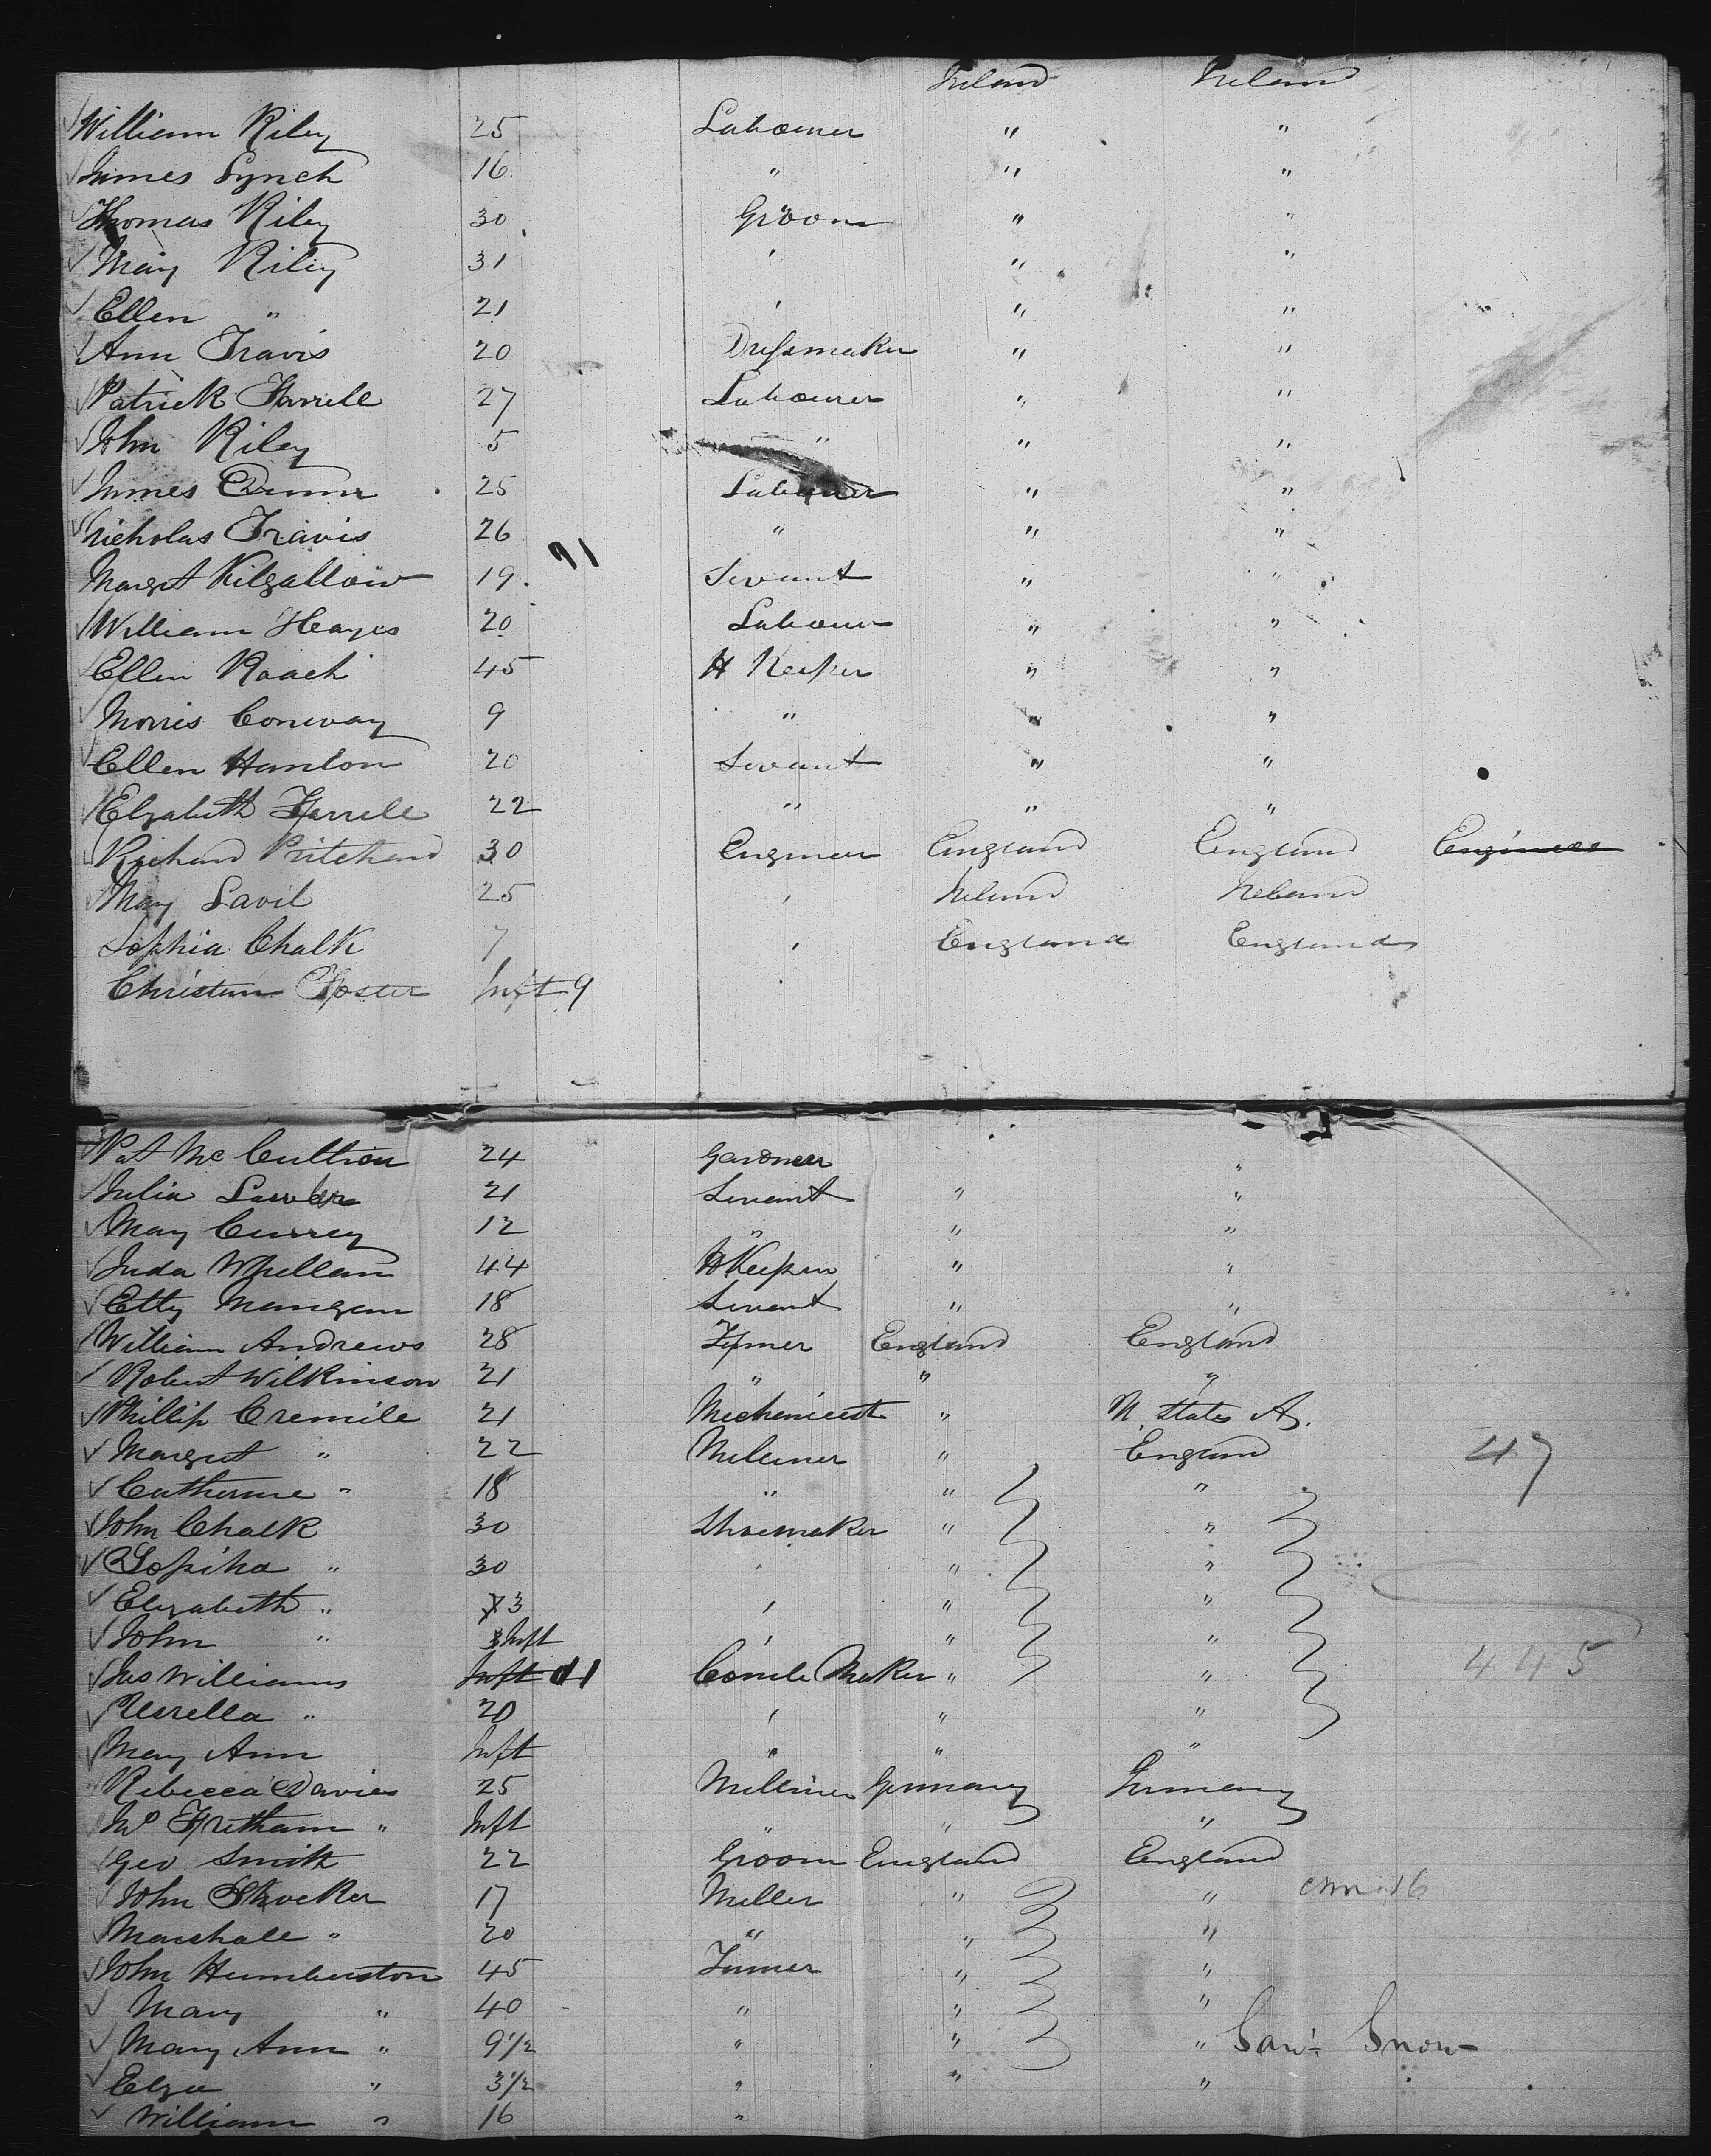 Ireland Ireland
William Riley 25 Labourer " "
James Lynch 16 " " "
Thomas Riley 30 Groom " "
Mary Riley 31 ' " "
Ellen " 21 ' " "
Ann Travis 20 Dressmaker " "
Patrick Farrell 27 Labourer " "
John Riley 5 " " "
James Dunn 25 Labourer " "
Nicholas Travis 26 " " "
Margt Kilgallow 19 Servant " "
William Heayes 20 Labourer " "
Ellen Roach 45 H Keeper " "
Morris Conway 9 " " "
Ellen Hanlon 20 Servant " "
Elizabeth Farrell 22 " " "
Richard Pritchard 30 Engineer England England Engineer
Mary Lavil 25 ' Ireland Ireland
Sophia Chalk 7 ' England England
Christian Foster Inft 9
Pat Mc Cultion 24 Gardner "
Julia Lawler 21 Servant " "
Mary Currey 12 " " "
Juda Whellan 44 H Keeper " "
Etty Mangan 18 Servant " "
William Andrews 28 Farmer England England
Robert Wilkinson 21 " " "
Phillip Cremile 21 Mechenicest " U. States A.
Margret " 22 Milliner " England 47
Catherine " 18 " " "
John Chalk 30 Shoemaker " "
Sopiha " 30 ' " "
Elizabeth " 3 ' " "
John " Inft ' " "
Jas Williams Inft 41 Comb Maker " " 445
Urrella " 20 ' " "
Mary Ann Inft " " "
Rebecca Davies 25 Milliner Germany Germany
Fretham " Inft " " "
Geo Smith 22 Groom England England
John Shocker 17 Miller " "
Marshall " 20 " " "
John Humberston 45 Farmer " "
Mary " 40 " " "
Mary Ann " 9 1/2 " " " Snow
Eliza " 3 1/2 " " "
William " 16 "